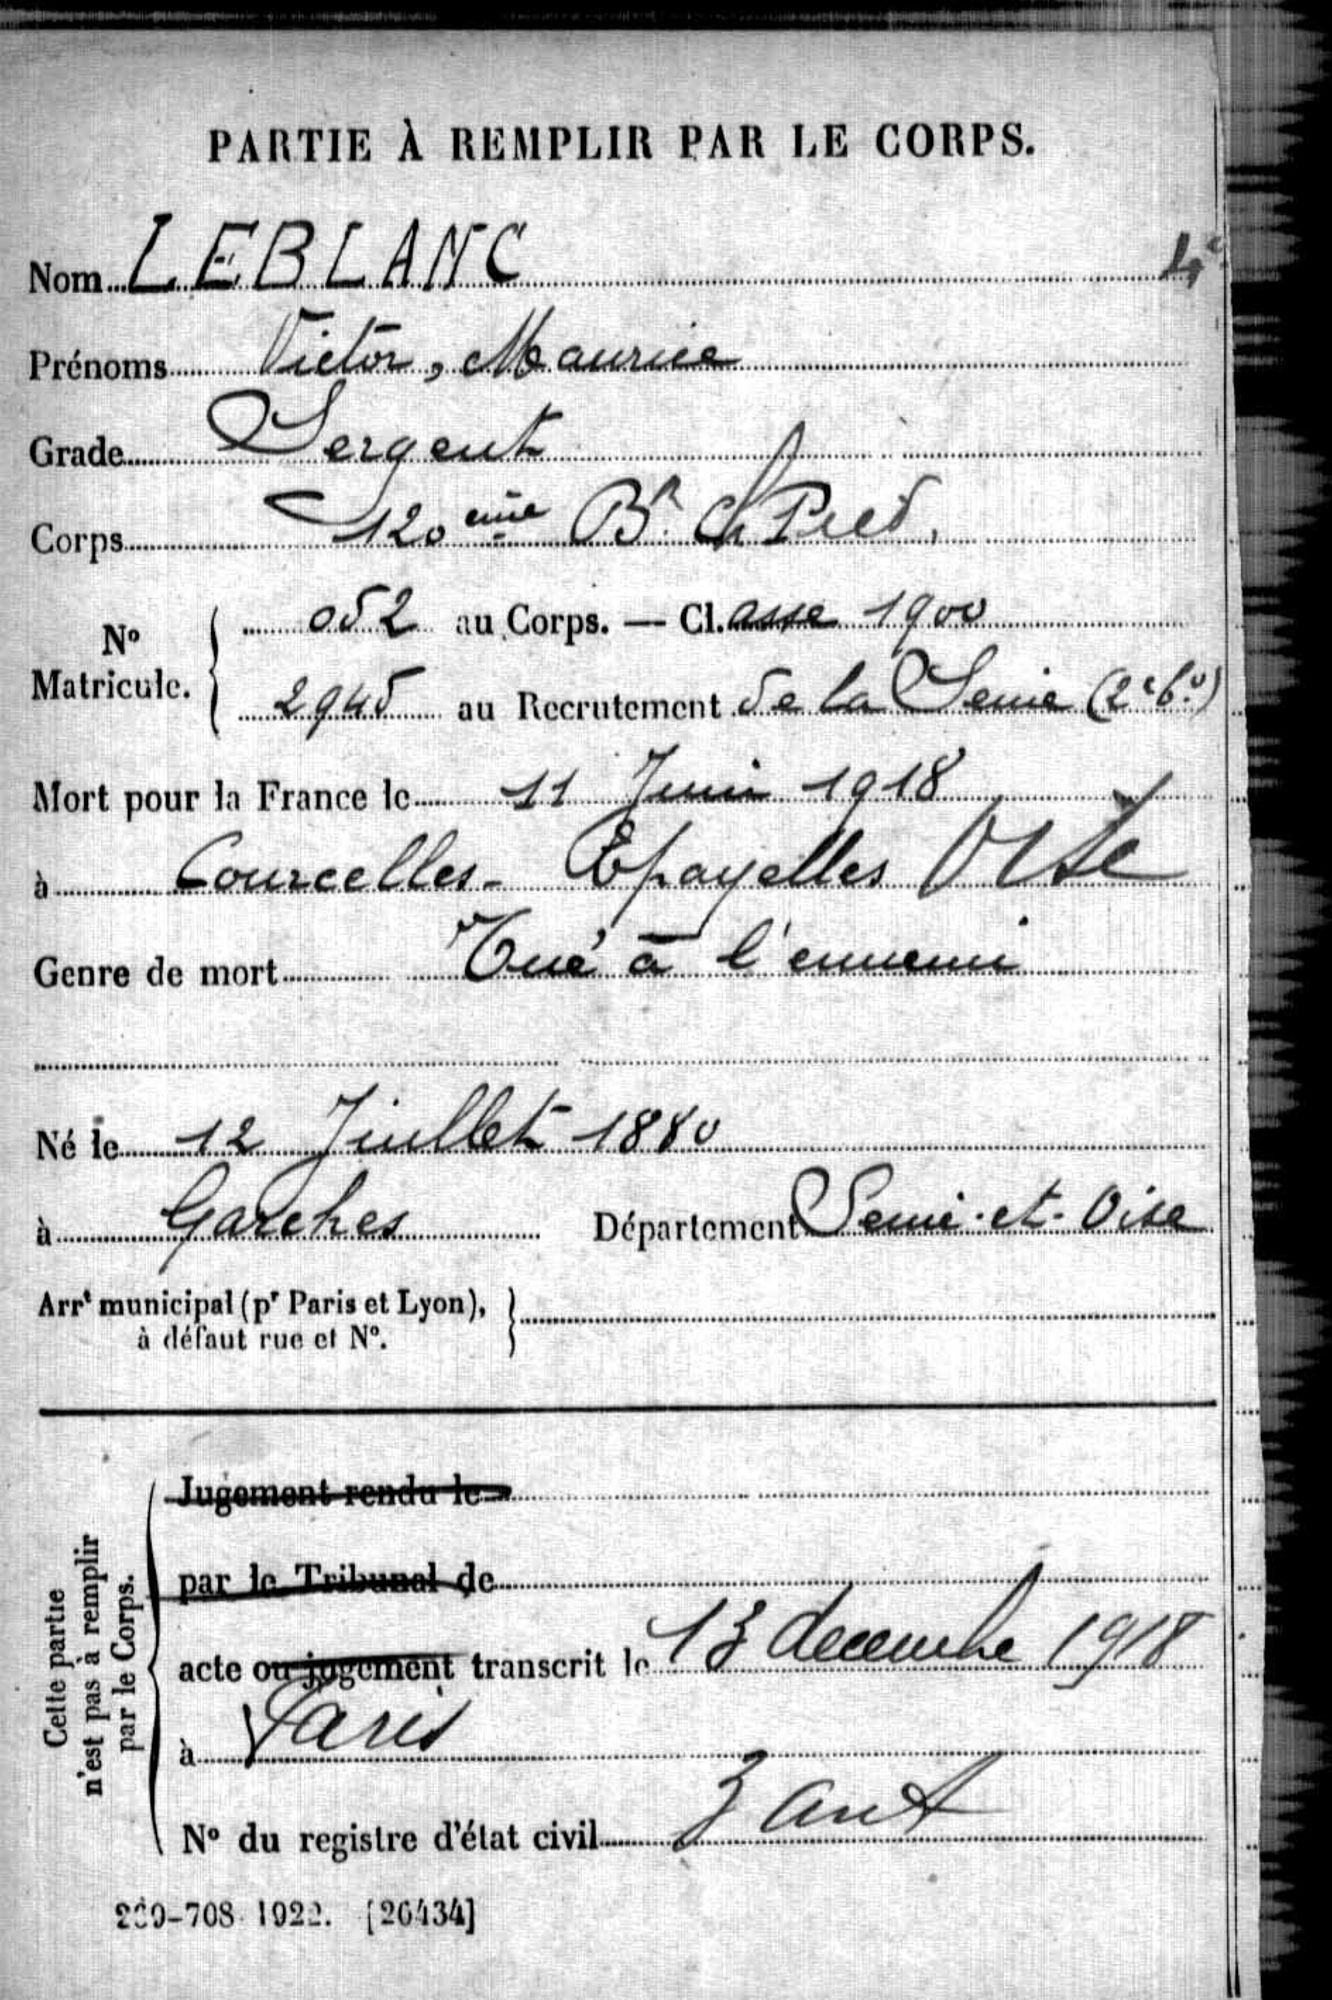 PARTIE À REMPLIR PAR LE CORPS.
Nom LEBLANC 4e
Prénoms Victor, Maurice
Grade Sergent
Corps 120ème Bn Ch Pied.
No Matricule. 052 au Corps. — Cl.asse 1900
2945 au Recrutement de la Seine (2e bu)
Mort pour la France le 11 Juin 1918
à Courcelles- Epayelles Oise
Genre de mort Tué à l'ennemi
Né le 12 Juillet 1880
à Garches Département Seine-et-Oise
Arrt municipal (pr Paris et Lyon),
à défaut rue et No.
Cette partie
n'est pas à remplir
par le Corps.
Jugement rendu le
par le Tribunal de
acte ou jugement transcrit le 13 decembre 1918
à Paris
No du registre d'état civil 3 art
-708 1922. [26434]